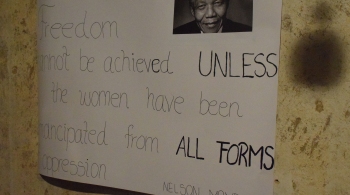 freedom
nnot be achieved UNLESS
the women have been
mancipated from ALL FORMS
ppression
NELSON